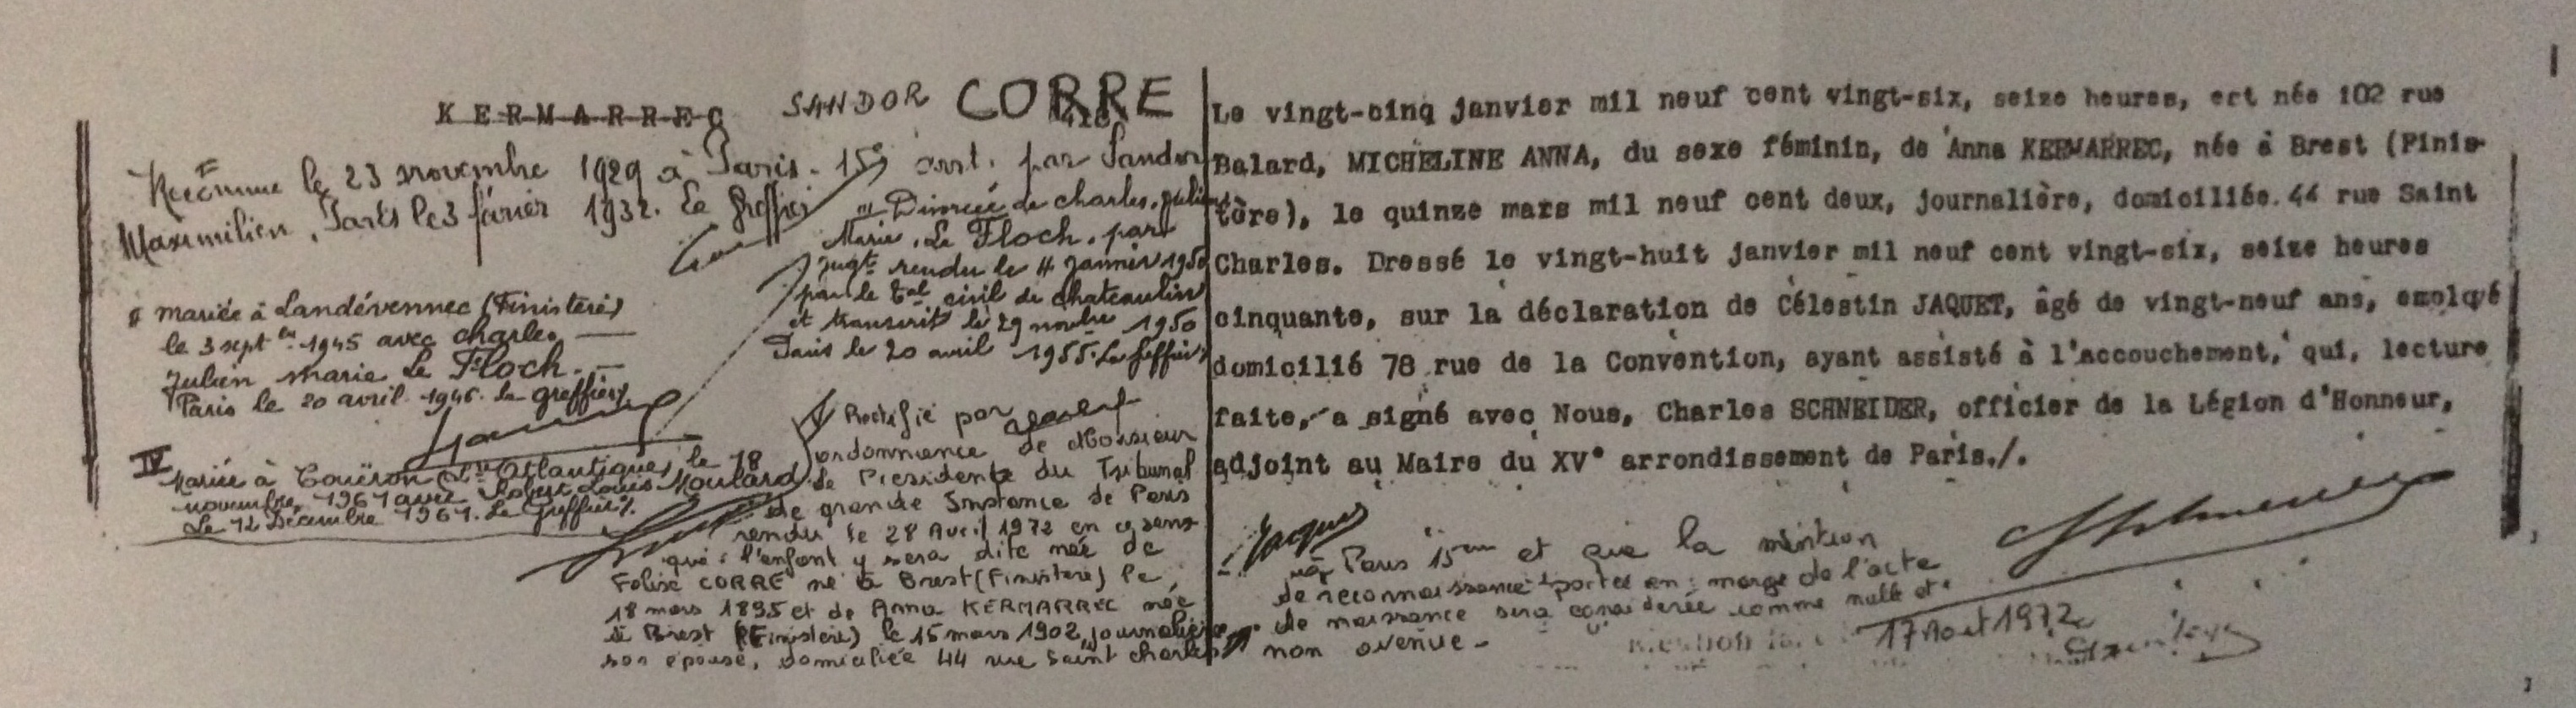 KERMARREC SANDOR CORRE
Reconnue le 23 novembre 1929 à Paris - 15e arrt. par Sandor
Maximilien, Paris le 3 février 1932. Le Greffier
II mariée à Landévennec (Finistère)
le 3 septbre 1945 avec Charles
Julien Marie Le Floch.
Paris le 20 avril 1946. le greffier
III Divorcée de Charles, Julien
Marie, Le Floch, par
jugt rendu le 4 janvier 1950
par le tal civil de Chateaulin
et transcrit le 29 novbre 1950
Paris le 20 avril 1955. Le Greffier
IV
Mariée à Couëron (Lre Atlantique) le 18
novembre, 1961 avec Robert Louis Moulard
Le 12 Décembre 1961. Le Greffier
V Rectifié par
ordonnance de Monsieur
le Presidente du Tribunal
de grande Instance de Paris
rendu le 28 Avril 1972 en ce sens
que : l'enfant y sera dite née de
Felise CORRE né à Brest (Finistere) le
18 mars 1895 et de Anna KERMARREC née
à Brest (Finistere) le 15 mars 1902, journalière
son épouse, domiciliée 44 rue Saint Charles
Le vingt-cinq janvier mil neuf cent vingt-six, seize heures, ert née 102 rue
Balard, MICHELINE ANNA, du sexe féminin, de Anna KERMARREC, née à Brest (Finis-
tère), le quinze mars mil neuf cent deux, journalière, domiciliée. 44 rue Saint
Charles. Dressé le vingt-huit janvier mil neuf cent vingt-six, seize heures
cinquante, sur la déclaration de Célestin JAQUET, âgé de vingt-neuf ans, emolqyé
domicilié 78 rue de la Convention, ayant assisté à l'accouchement, qui, lecture
faite, a signé avec Nous, Charles SCHNEIDER, officier de la Légion d'Honneur,
adjoint au Maire du XV° arrondissement de Paris./.
Jaquet
à Paris 15eme et que la mention
de reconnaissance portée en marge de l'acte
de naissance sera considerée comme nulle et
non avenue -
17 Aout 1972